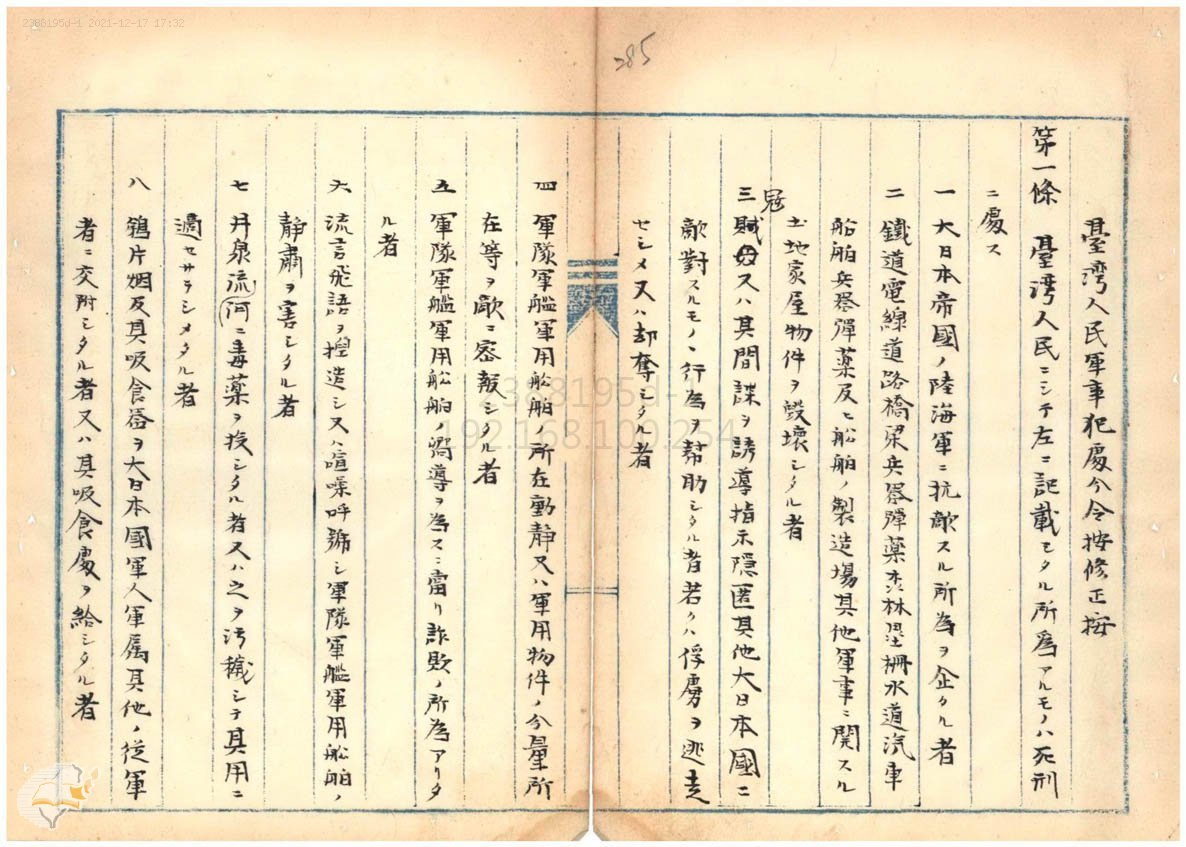 2388195d-1 2021-12-17 17:32
285
臺灣人民軍事犯處分令按修正按
第一條 臺灣人民ニシテ左ニ記載シタル所爲アルモノハ死刑
ニ處ス
一 大日本帝國ノ陸海軍ニ抗敵スル所為ヲ企タル者
二 鐵道電線道路橋梁兵器彈藥森林壘柵水道汽車
船舶兵器彈藥及ヒ船舶ノ製造場其他軍事ニ関スル
土地家屋物件ヲ毀壞シタル者
三 賊又ハ其間諜ヲ誘導指示隠匿其他大日本國ニ
寇
敵對スルモノヽ行為ヲ幇助シタル者若クハ俘虜ヲ逃走
セシメ又ハ却奪シタル者
四 軍隊軍艦軍用船舶ノ所在動静又ハ軍用物件ノ分量所
在等ヲ敵ニ密報シタル者
五 軍隊軍艦軍用船舶ノ嚮導ヲ為スニ當リ詐欺ノ所為アリタ
ル者
六 流言飛語ヲ捏造シ又ハ喧噪呼號シ軍隊軍艦軍用船舶ノ
静肅ヲ害シタル者
七 井泉流河ニ毒藥ヲ投シタル者又ハ之ヲ汚穢シテ其用ニ
適セサラシメタル者
八 鴉片烟及其吸食器ヲ大日本國軍人軍属其他ノ従軍
者ニ交附シタル者又ハ其吸食處ヲ給シタル者
2388195d-1
192.168.100.254